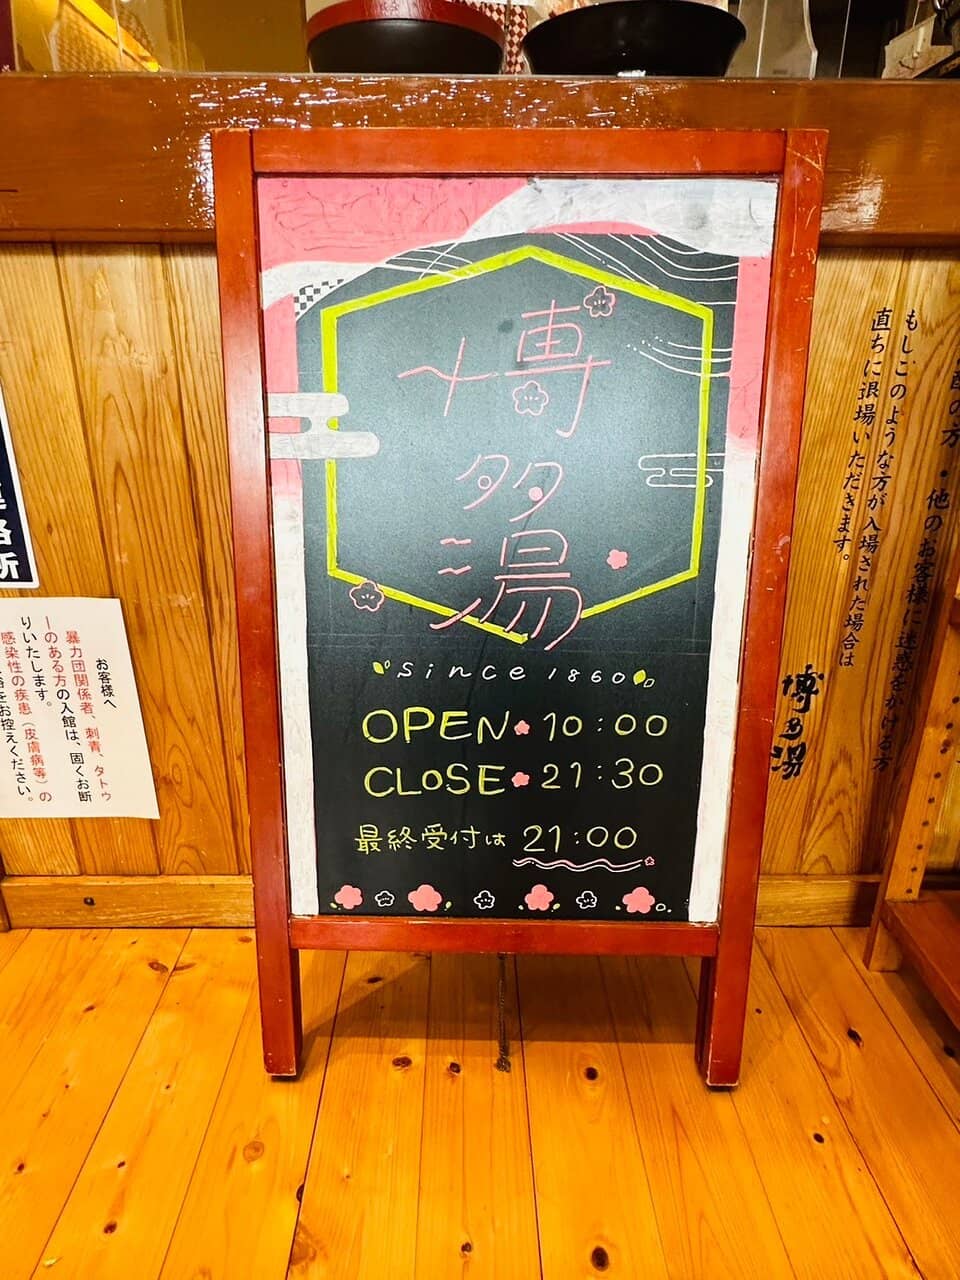 博多湯
since 1860
OPEN 10:00
CLOSE 21:30
最終受付は 21:00
お客様へ
暴力団関係者、刺青、タトゥ
ーのある方の入館は、固くお断
りいたします。
感染性の疾患（皮膚病等）の
・他のお客様に迷惑をかける方
もしこのような方が入場された場合は
直ちに退場いただきます。
博多湯